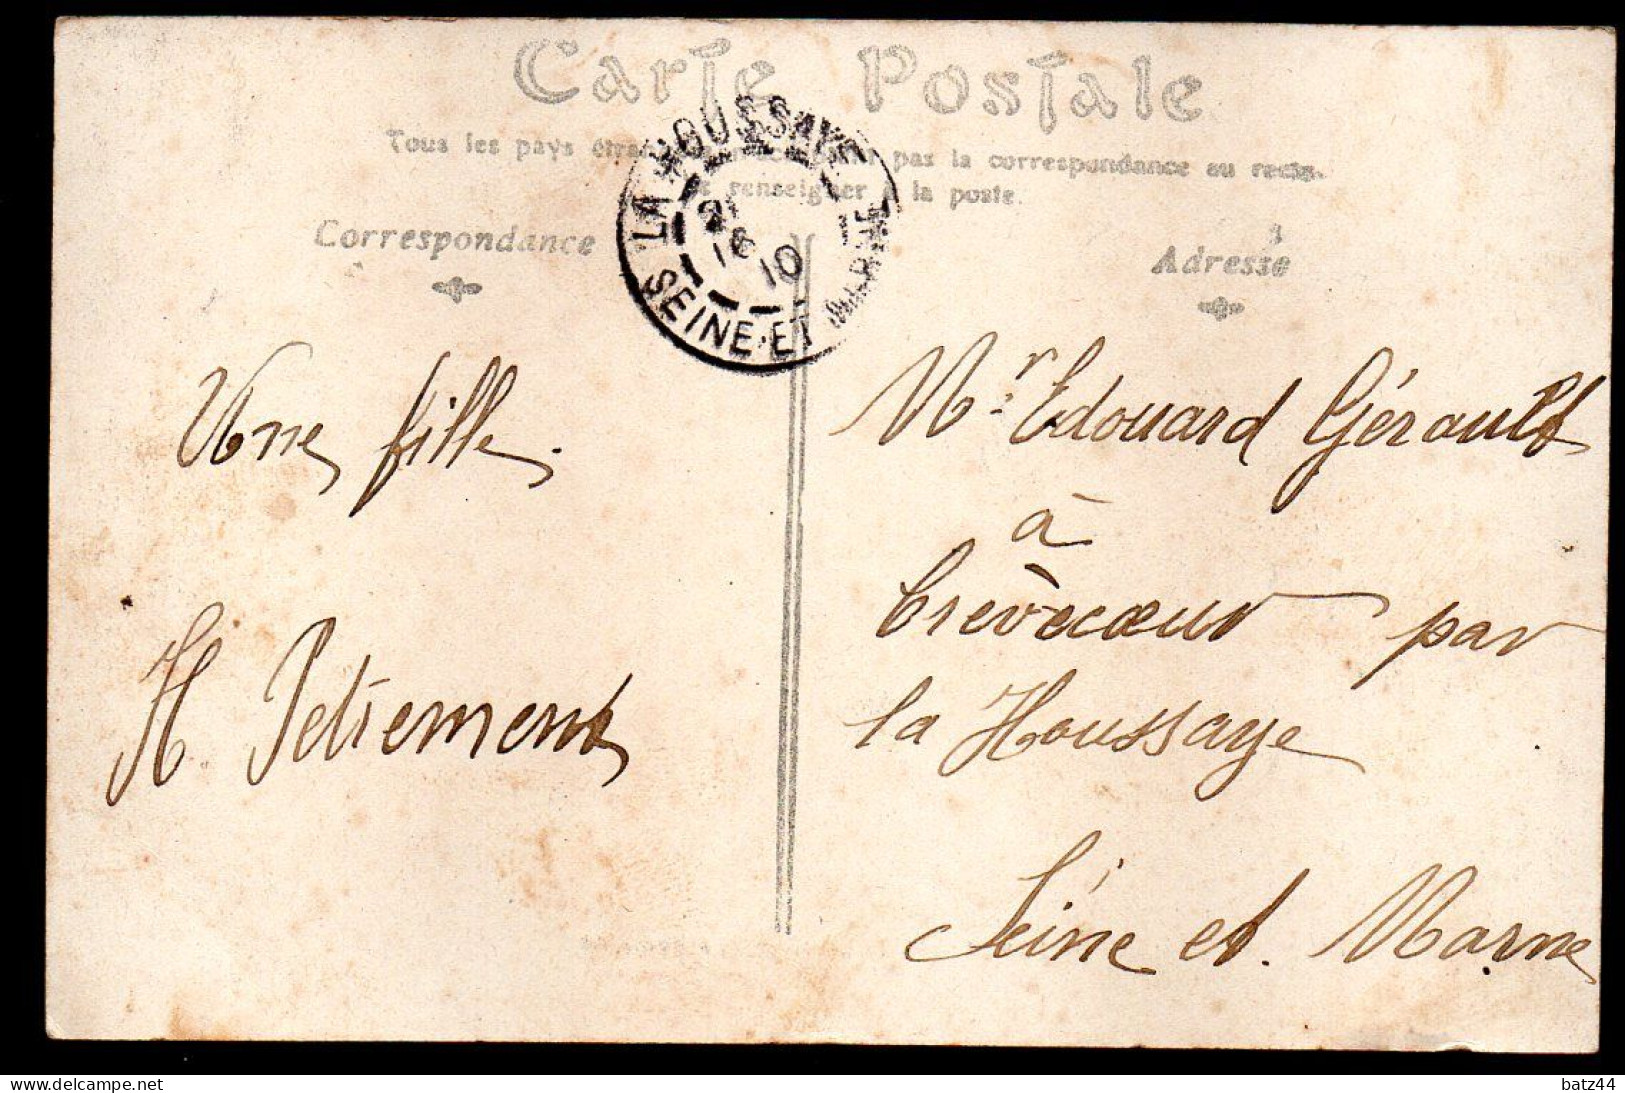 Carte Postale
Tous les pays étrangers n'acceptent pas la correspondance au recto.
se renseigner à la poste.
Correspondance
Adresse
LA HOUSSAYE
21
18
10
SEINE-ET-MARNE
Une fille.
H Petrement
Mr. Edouard Gérault
à
Crèvecœur par
la Houssaye
Seine et. Marne
www.delcampe.net
batz44